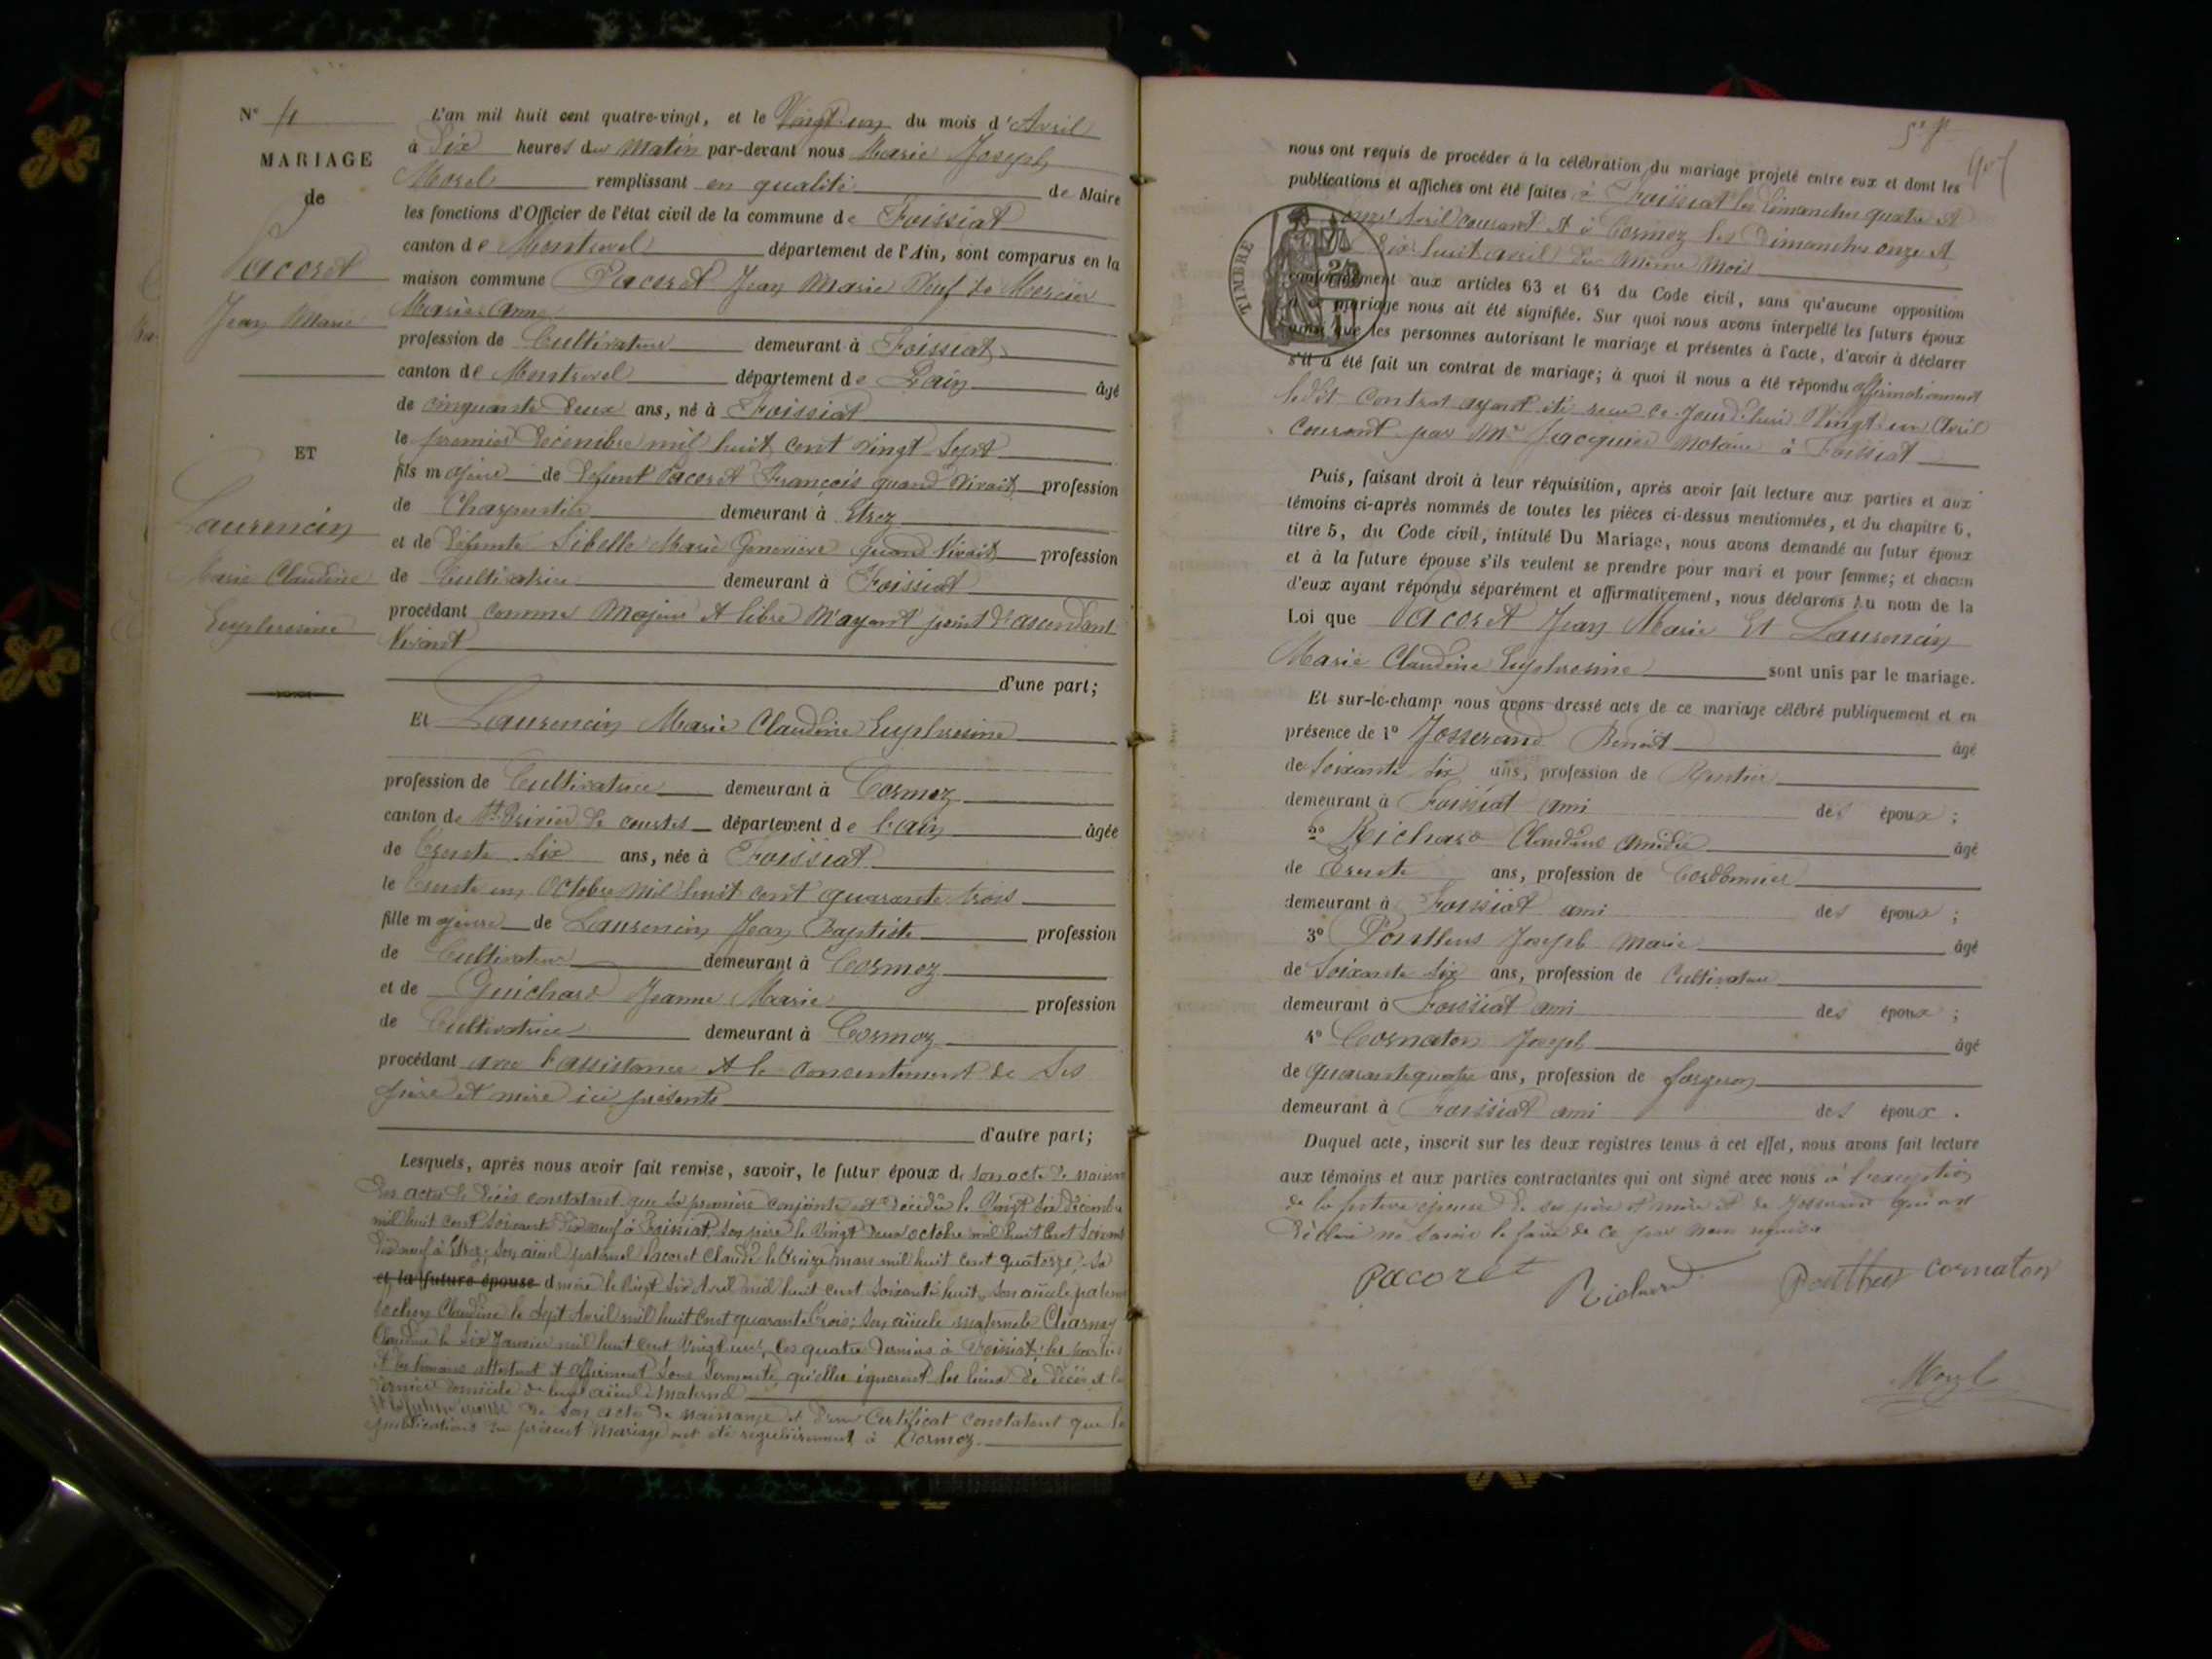 N° 4
MARIAGE
de
Pacoret
Jean Marie
ET
Laurencin
Marie Claudine
Euphrosine
L'an mil huit cent quatre-vingt, et le Vingt un du mois d'Avril
à Dix heures du Matin par-devant nous Marie Joseph
Morel remplissant en qualité de Maire
les fonctions d'Officier de l'état civil de la commune de Foissiat
canton de Montrevel département de l'Ain, sont comparus en la
maison commune Pacoret Jean Marie Veuf de Mercier
Marie Anne
profession de Cultivateur demeurant à Foissiat
canton de Montrevel département de L'ain âgé
de cinquante deux ans, né à Foissiat
le premier Décembre mil huit cent vingt Sept
fils majeur de défunt Pacoret François quand Vivait profession
de Charpentier demeurant à Etrez
et de défunte Sibelle Marie Geneviève quand Vivait profession
de Cultivatrice demeurant à Foissiat
procédant comme Majeur et libre N'ayant point d'ascendant
Vivant
d'une part;
Et Laurencin Marie Claudine Euphrosine
profession de Cultivatrice demeurant à Cormoz
canton de St Trivier de courtes département de l'ain âgée
de Trente Six ans, née à Foissiat
le Trente un Octobre mil huit cent quarante trois
fille majeure de Laurencin Jean Baptiste profession
de Cultivateur demeurant à Cormoz
et de Guichard Jeanne Marie profession
de Cultivatrice demeurant à Cormoz
procédant avec l'assistance et le consentement de Ses
père et mère ici présents
d'autre part;
Lesquels, après nous avoir fait remise, savoir, le futur époux de Son acte de naissance
Des actes de Décès constatant que Sa première conjointe est décédée le Vingt Six Décembre
mil huit cent Soixante Dix neuf à Foissiat, Son père le Vingt Deux octobre mil huit cent Soixante
Dix neuf à Etrez; Son aïeul paternel Pacoret Claude le Treize mars mil huit cent quatorze; Sa
et la future épouse d mère le Vingt Six Avril mil huit cent Soixante huit, Son aïeule paternelle
Claudine le Sept Avril mil huit cent quarante Trois; Son aïeule maternelle Charnay
Claudine le Six Janvier mil huit cent Vingt neuf, Ces quatre derniers à Foissiat; les parties
et les témoins attestent et affirment Sous Serment, qu'elles ignorent les lieux de Décès et le
dernier domicile de leur aïeul Maternel
Et la future épouse De Son acte de naissance et d'un Certificat constatant que les
publications du présent Mariage ont été régulièrement à Cormoz.
nous ont requis de procéder à la célébration du mariage projeté entre eux et dont les
publications et affiches ont été faites à Foissiat les Dimanches quatre et
onze Avril courant et à Cormoz les Dimanches onze et
Dix huit avril du même Mois
TIMBRE
conformément aux articles 63 et 64 du Code civil, sans qu'aucune opposition
à ce mariage nous ait été signifiée. Sur quoi nous avons interpellé les futurs époux
ainsi que les personnes autorisant le mariage et présentes à l'acte, d'avoir à déclarer
s'il a été fait un contrat de mariage; à quoi il nous a été répondu affirmativement
ledit Contrat ayant été reçu ce Jourd'hui Vingt un Avril
Courant par Me Jacquier Notaire à Foissiat
Puis, faisant droit à leur réquisition, après avoir fait lecture aux parties et aux
témoins ci-après nommés de toutes les pièces ci-dessus mentionnées, et du chapitre 6,
titre 5, du Code civil, intitulé Du Mariage, nous avons demandé au futur époux
et à la future épouse s'ils veulent se prendre pour mari et pour femme; et chacun
d'eux ayant répondu séparément et affirmativement, nous déclarons au nom de la
Loi que Pacoret Jean Marie Et Laurencin
Marie Claudine Euphrosine sont unis par le mariage.
Et sur-le-champ nous avons dressé acte de ce mariage célébré publiquement et en
présence de 1° Josserand Benoit âgé
de Soixante Six ans, profession de Rentier
demeurant à Foissiat ami des époux ;
2° Richard Claudius Amédée âgé
de Trente ans, profession de Cordonnier
demeurant à Foissiat ami des époux ;
3° Ponthus Joseph Marie âgé
de Soixante Six ans, profession de Cultivateur
demeurant à Foissiat ami des époux ;
4° Cornaton Joseph âgé
de quarante quatre ans, profession de forgeron
demeurant à Foissiat ami des époux .
Duquel acte, inscrit sur les deux registres tenus à cet effet, nous avons fait lecture
aux témoins et aux parties contractantes qui ont signé avec nous à l'exception
de la future épouse de ses père et mère et de Josserand qui ont
Déclaré ne Savoir le faire de ce par Nous requis
Pacoret Richard Ponthus cornaton
Morel